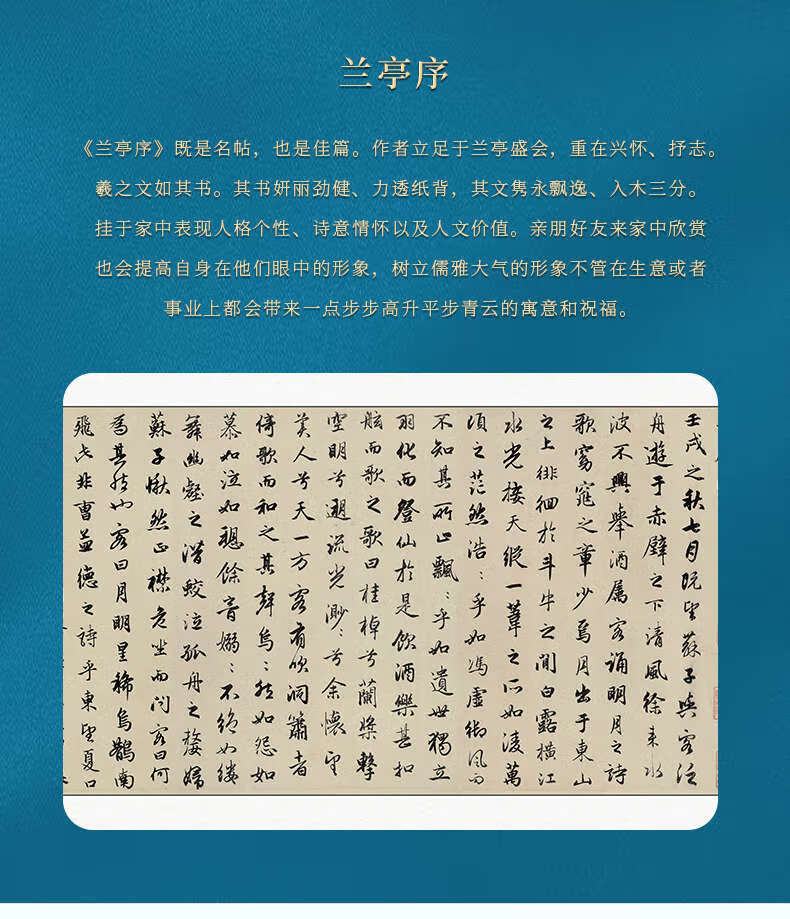 兰亭序
《兰亭序》既是名帖，也是佳篇。作者立足于兰亭盛会，重在兴怀、抒志。
羲之文如其书。其书妍丽劲健、力透纸背，其文隽永飘逸、入木三分。
挂于家中表现人格个性、诗意情怀以及人文价值。亲朋好友来家中欣赏
也会提高自身在他们眼中的形象，树立儒雅大气的形象不管在生意或者
事业上都会带来一点步步高升平步青云的寓意和祝福。
壬戌之秋七月既望蘇子與客泛
舟遊于赤壁之下清風徐来水
波不興舉酒属客誦明月之詩
歌窈窕之章少焉月出于東山
之上徘徊於斗牛之間白露橫江
水光接天縱一葦之所如淩萬
頃之茫然浩〻乎如馮虛御風而
不知其所止飄〻乎如遺世獨立
羽化而登仙於是飲酒樂甚扣
舷而歌之歌曰桂棹兮蘭槳擊
空明兮遡流光渺〻兮余懷望
美人兮天一方客有吹洞簫者
倚歌而和之其聲烏〻然如怨如
慕如泣如餘音嫋〻不絶如縷
舞幽壑之潛蛟泣孤舟之嫠婦
蘇子愀然正襟危坐而問客曰何
為其然也客曰月明星稀烏鵲南
飛此非曹孟德之詩乎東望夏口